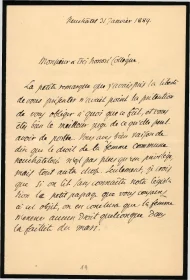 Neuchâtel 31 Janvier 1889.
Monsieur et très honoré Collègue
La petite remarque que j'avais pris la liberté
de vous présenter n'avait point la prétention
de vous obliger à quoi que ce fût, et vous
êtes bien le meilleur juge de ce qu'elle peut
avoir de portée. Vous avez bien raison de
dire que le droit de la femme commune
neuchâteloise n'est pas plus qu'un privilège,
mais tout autre chose. Seulement, je crois
que si on lit sans connaître notre législ-
tion le petit passage que vous consacrez
à cet objet, on en conclura que la femme
n'a aucun droit quelconque dans
la faillite du mari.